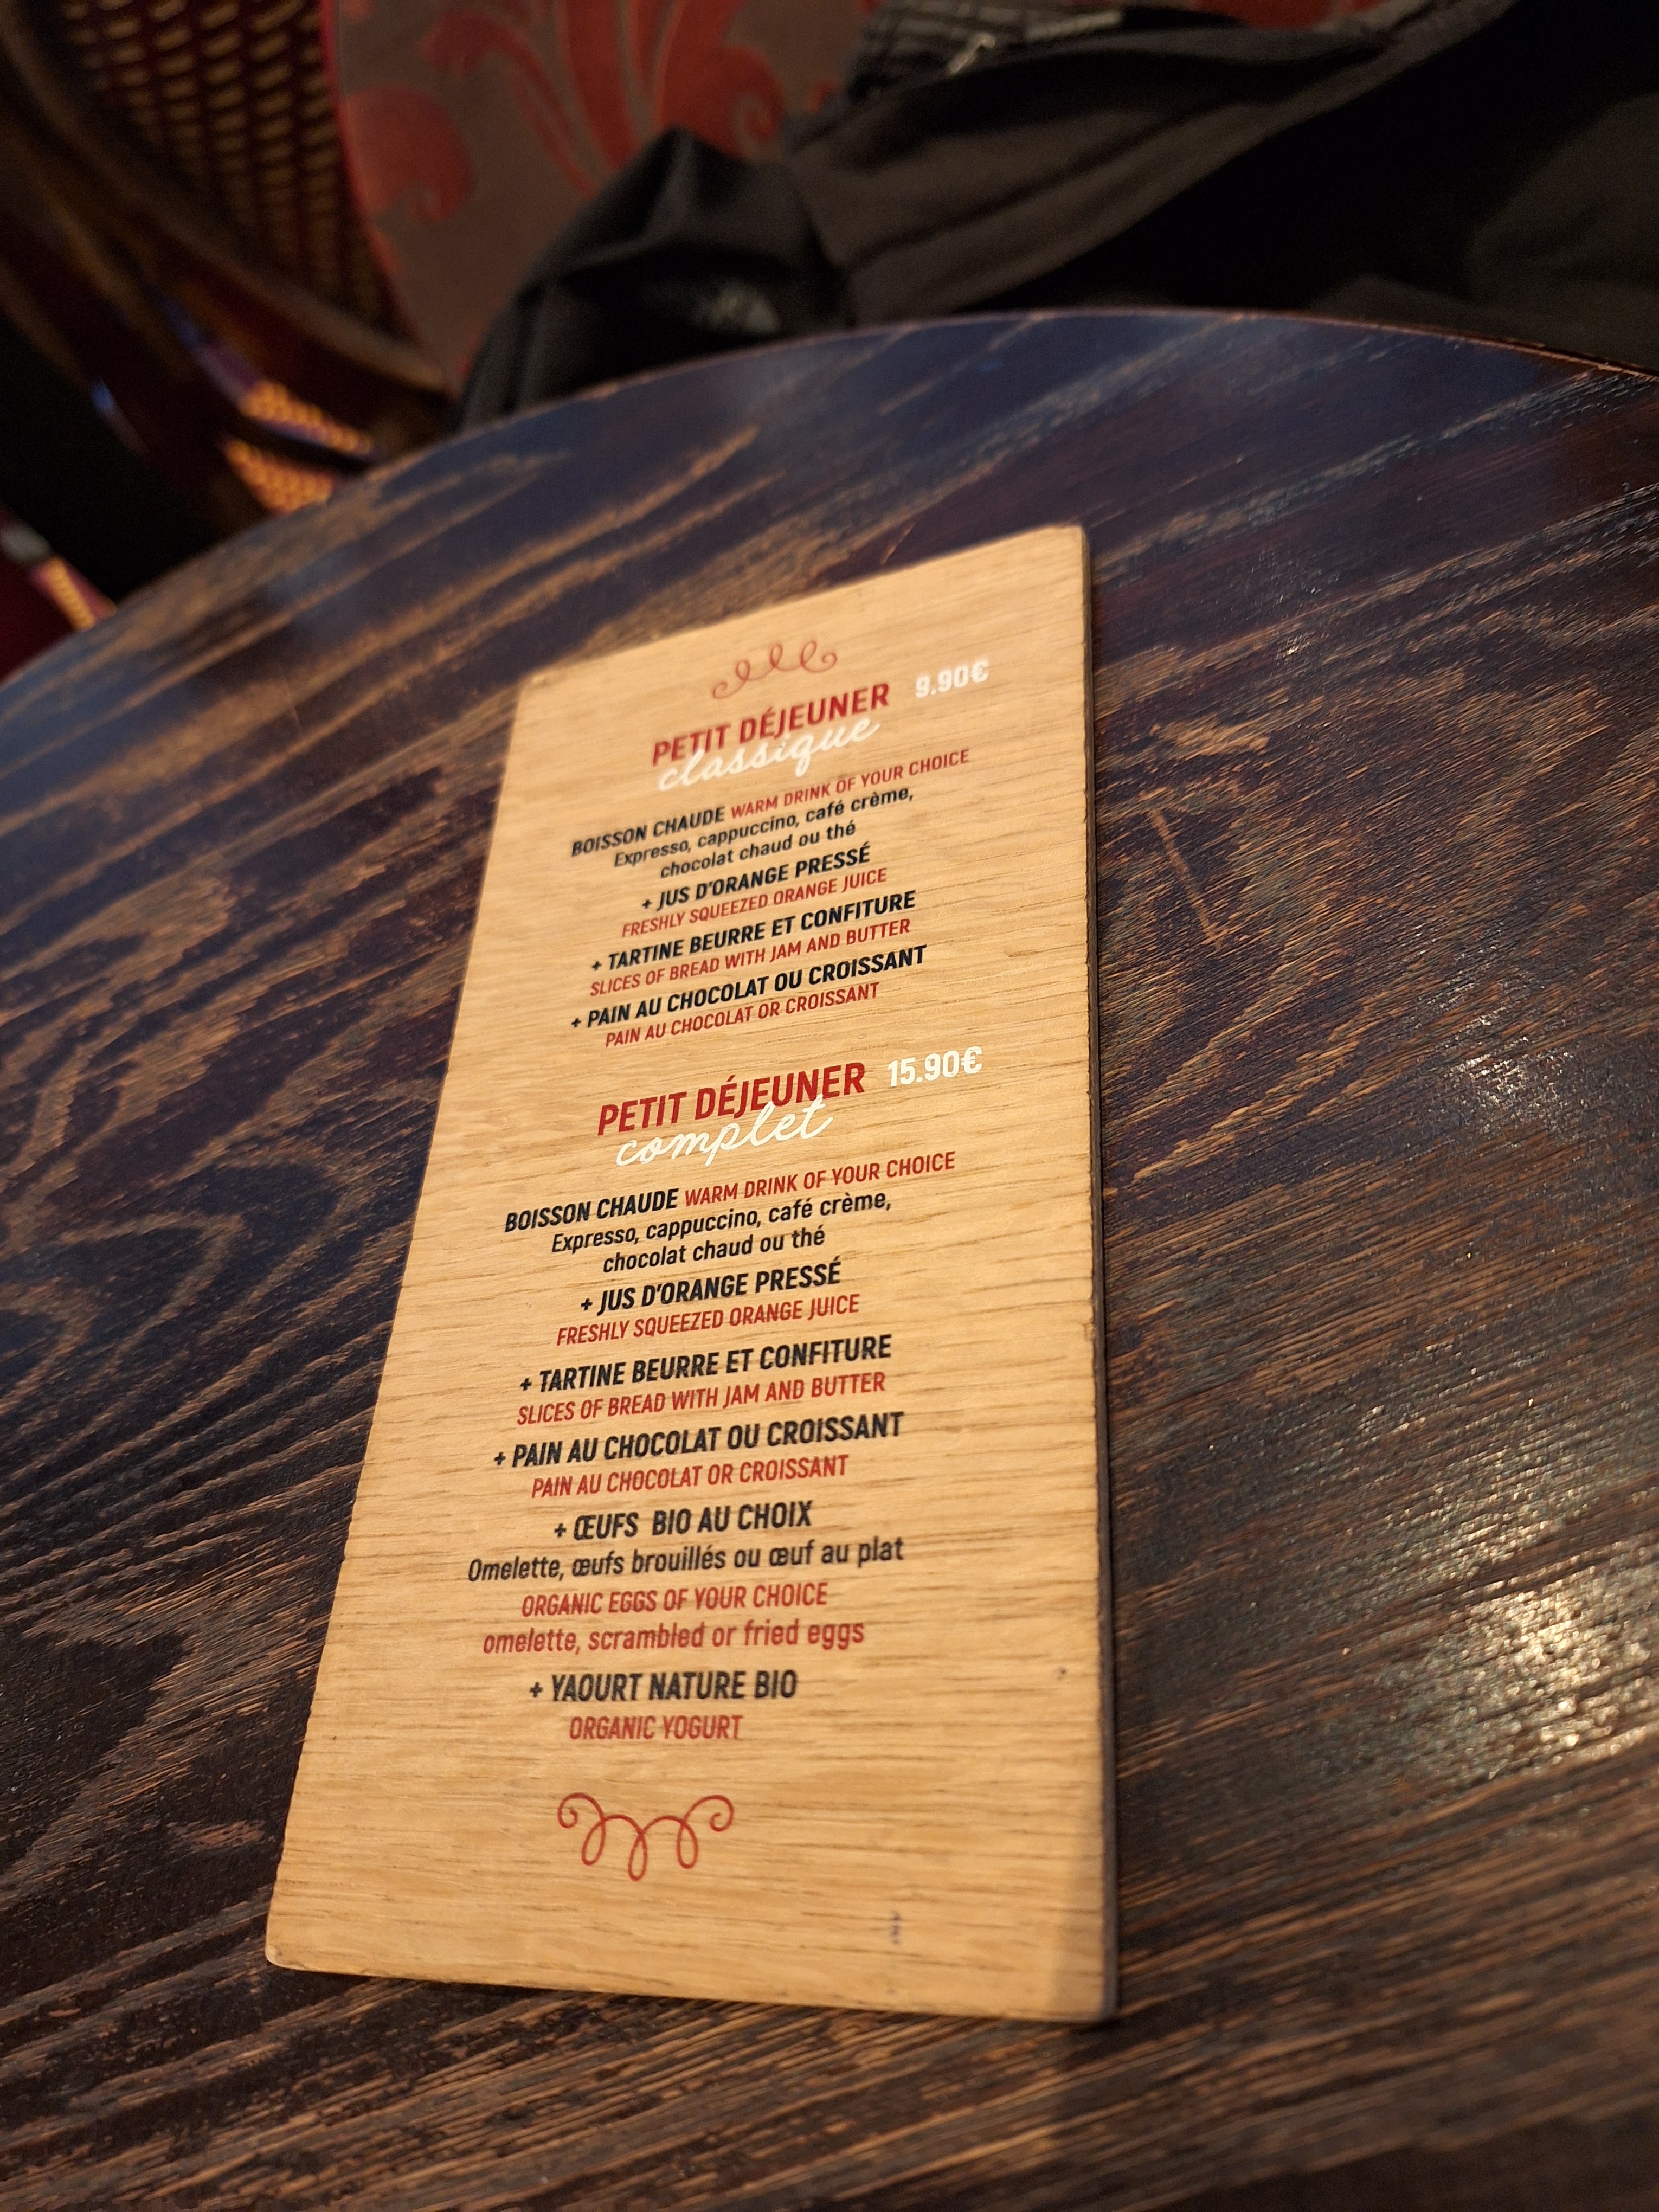 PETIT DÉJEUNER 9.90€
classique
BOISSON CHAUDE WARM DRINK OF YOUR CHOICE
Expresso, cappuccino, café crème,
chocolat chaud ou thé
+ JUS D'ORANGE PRESSÉ
FRESHLY SQUEEZED ORANGE JUICE
+ TARTINE BEURRE ET CONFITURE
SLICES OF BREAD WITH JAM AND BUTTER
+ PAIN AU CHOCOLAT OU CROISSANT
PAIN AU CHOCOLAT OR CROISSANT
PETIT DÉJEUNER 15.90€
complet
BOISSON CHAUDE WARM DRINK OF YOUR CHOICE
Expresso, cappuccino, café crème,
chocolat chaud ou thé
+ JUS D'ORANGE PRESSÉ
FRESHLY SQUEEZED ORANGE JUICE
+ TARTINE BEURRE ET CONFITURE
SLICES OF BREAD WITH JAM AND BUTTER
+ PAIN AU CHOCOLAT OU CROISSANT
PAIN AU CHOCOLAT OR CROISSANT
+ ŒUFS BIO AU CHOIX
Omelette, œufs brouillés ou œuf au plat
ORGANIC EGGS OF YOUR CHOICE
omelette, scrambled or fried eggs
+ YAOURT NATURE BIO
ORGANIC YOGURT